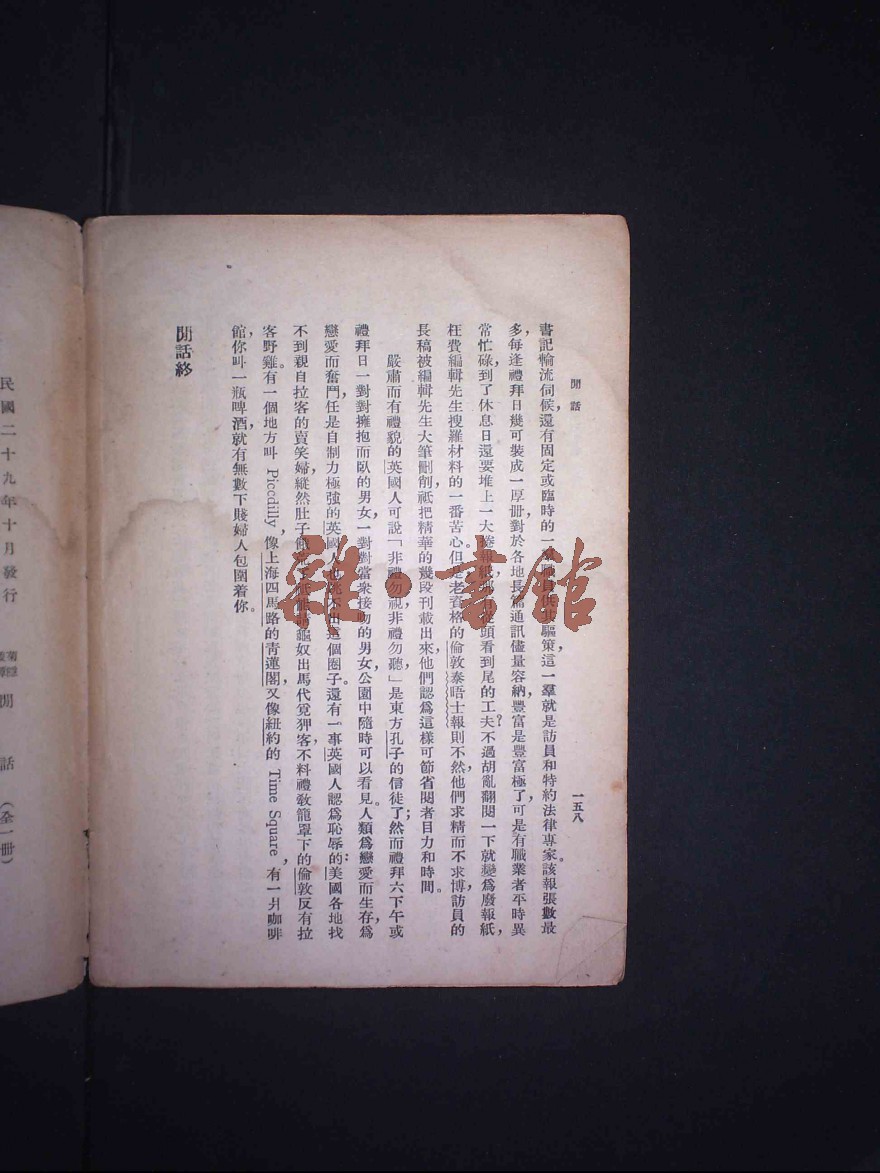 閒話
一五八
書記輪流伺候，還有固定或臨時的一羣職員供其驅策，這一羣就是訪員和特約法律專家。該報張數最
多，每逢禮拜日幾可裝成一厚冊，對於各地長篇通訊儘量容納，豐富是豐富極了，可是有職業者平時異
常忙碌，到了休息日還要堆上一大捲報紙，那有從頭看到尾的工夫？不過胡亂翻閱一下就變爲廢報紙，
枉費編輯先生搜羅材料的一番苦心。但是老資格的倫敦泰晤士報則不然，他們求精而不求博，訪員的
長稿被編輯先生大筆刪削，祇把精華的幾段刊載出來，他們認爲這樣可節省閱者目力和時間。
嚴肅而有禮貌的英國人可說「非禮勿視，非禮勿聽」是東方孔子的信徒了；然而禮拜六下午或
禮拜日一對對擁抱而臥的男女，一對對當衆接吻的男女，公園中隨時可以看見。人類爲戀愛而生存，爲
戀愛而奮鬥，任是自制力極強的英國人也跳不出這個圈子。還有一事英國人認爲恥辱的：美國各地找
不到親自拉客的賣笑婦，縱然肚子餓 龜奴出馬代覓狎客，不料禮教籠罩下的倫敦反有拉
客野雞。有一個地方叫 Piccdilly，像上海四馬路的青蓮閣，又像紐約的 Time Square，有一爿咖啡
館，你叫一瓶啤酒，就有無數下賤婦人包圍着你。
閒話終
民國二十九年十月發行
菊
閒話（全一冊）
雜·書館